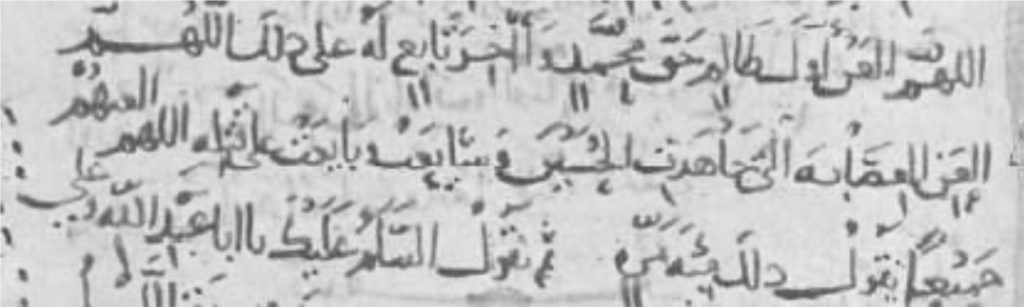 اللهم العن اول ظالم ظلم حق محمد وآخر تابع له على ذلك اللهم
العن العصابة التي جاهدت الحسين وشايعت وبايعت على قتله اللهم العنهم
جميعا تقول ذلك مئة مرة ثم تقول السلام عليك يا ابا عبد الله وعلى